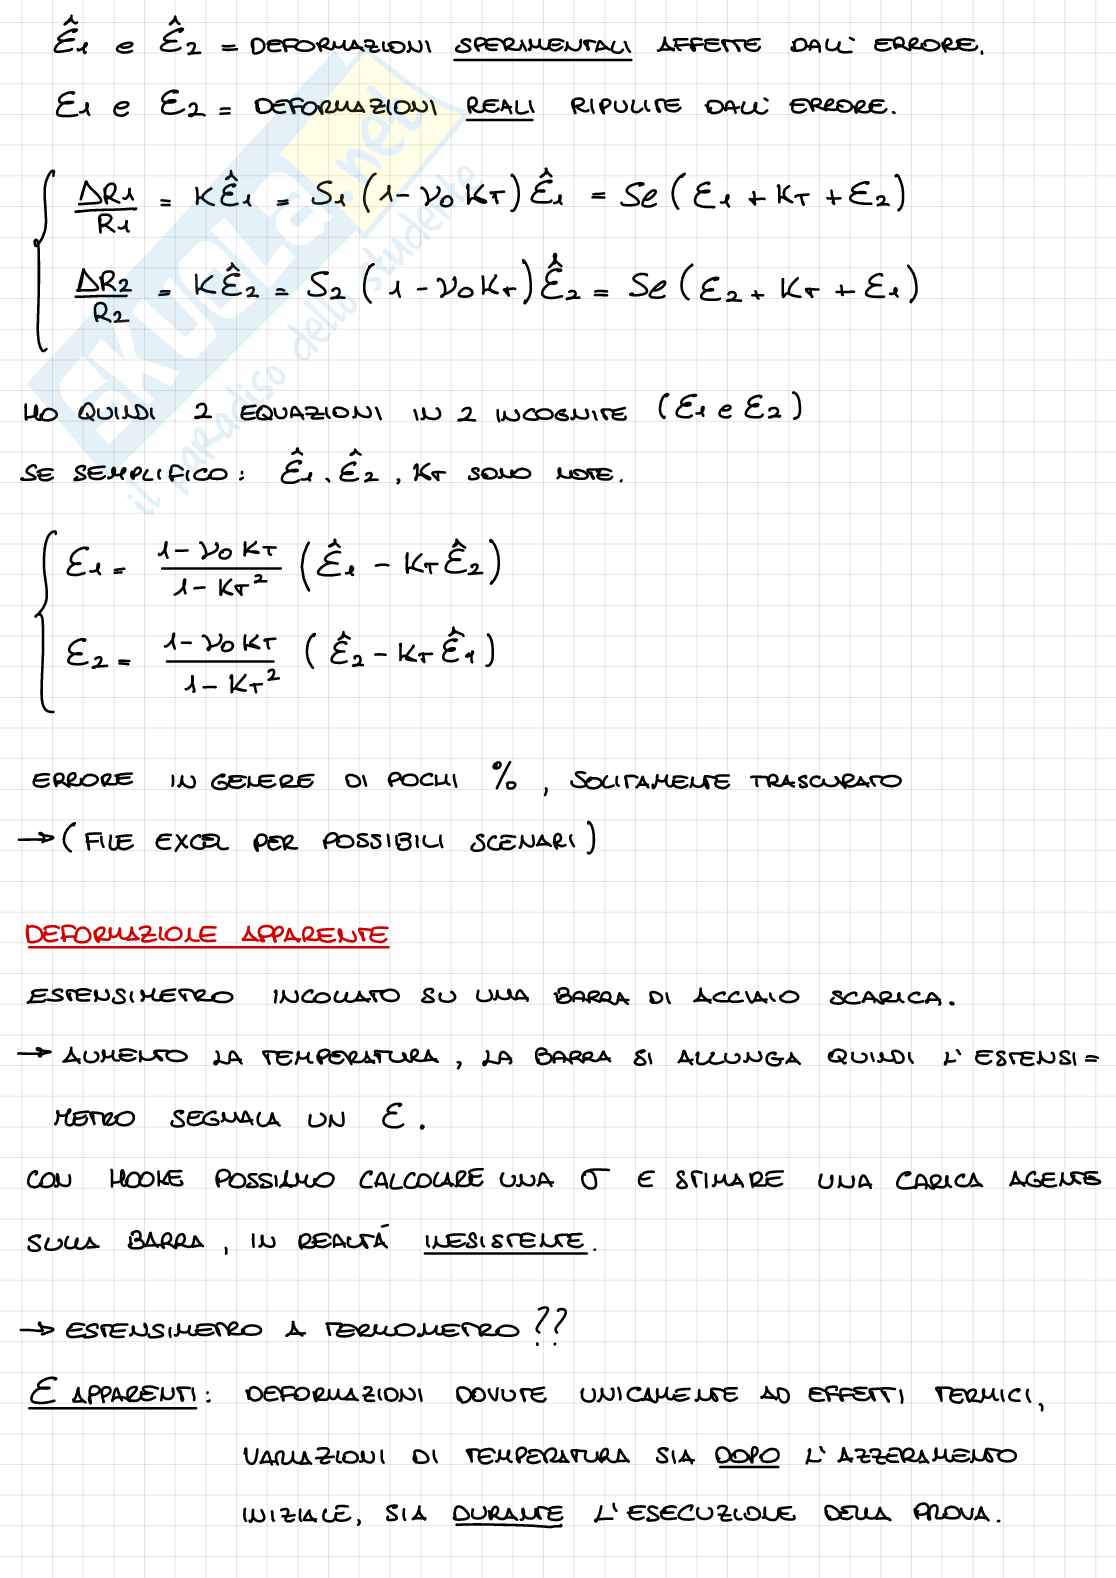 Ê1 e Ê2 = DEFORMAZIONI SPERIMENTALI AFFETTE DALL' ERRORE.
E1 e E2 = DEFORMAZIONI REALI RIPULITE DALL' ERRORE.
ΔR1/R1 = K Ê1 = S1 (1 - ν0 KT) Ê1 = Se (E1 + KT + E2)
ΔR2/R2 = K Ê2 = S2 (1 - ν0 KT) Ê2 = Se (E2 + KT + E1)
HO QUINDI 2 EQUAZIONI IN 2 INCOGNITE (E1 e E2)
SE SEMPLIFICO: Ê1, Ê2, KT SONO NOTE.
E1 = (1 - ν0 KT)/(1 - KT²) (Ê1 - KT Ê2)
E2 = (1 - ν0 KT)/(1 - KT²) (Ê2 - KT Ê1)
ERRORE IN GENERE DI POCHI %, SOLITAMENTE TRASCURATO
→ (FILE EXCEL PER POSSIBILI SCENARI)
DEFORMAZIONE APPARENTE
ESTENSIMETRO INCOLLATO SU UNA BARRA DI ACCIAIO SCARICA.
→ AUMENTO LA TEMPERATURA, LA BARRA SI ALLUNGA QUINDI L'ESTENSI=
METRO SEGNALA UN E.
CON HOOKE POSSIAMO CALCOLARE UNA σ E STIMARE UNA CARICA AGENTE
SULLA BARRA, IN REALTÁ INESISTENTE.
→ ESTENSIMETRO A TERMOMETRO ??
E APPARENTI: DEFORMAZIONI DOVUTE UNICAMENTE AD EFFETTI TERMICI,
VARIAZIONI DI TEMPERATURA SIA DOPO L'AZZERAMENTO
INIZIALE, SIA DURANTE L'ESECUZIONE DELLA PROVA.
SKUOLA.net
il paradiso dello studente